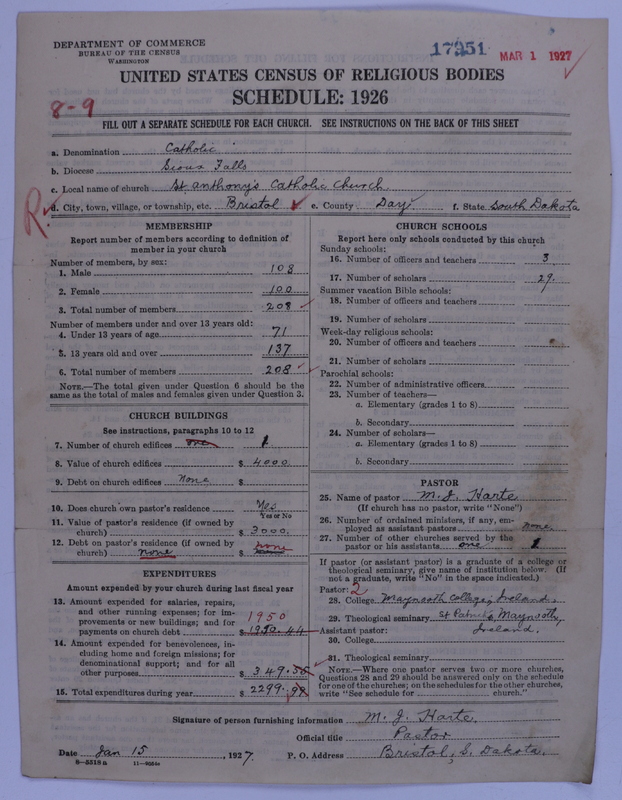 DEPARTMENT OF COMMERCE
BUREAU OF THE CENSUS
WASHINGTON
17251
MAR 1 1927
UNITED STATES CENSUS OF RELIGIOUS BODIES
SCHEDULE: 1926
8-9
FILL OUT A SEPARATE SCHEDULE FOR EACH CHURCH. SEE INSTRUCTIONS ON THE BACK OF THIS SHEET
a. Denomination Catholic
b. Diocese Sioux Falls
c. Local name of church St Anthony's Catholic Church
R
d. City, town, village, or township, etc. Bristol e. County Day f. State South Dakota
MEMBERSHIP
Report number of members according to definition of
member in your church
Number of members, by sex:
1. Male 108
2. Female 100
3. Total number of members 208
Number of members under and over 13 years old:
4. Under 13 years of age 71
5. 13 years old and over 137
6. Total number of members 208
NOTE.—The total given under Question 6 should be the
same as the total of males and females given under Question 3.
CHURCH BUILDINGS
See instructions, paragraphs 10 to 12
7. Number of church edifices one 1
8. Value of church edifices $ 4000
9. Debt on church edifices none $
10. Does church own pastor's residence Yes
Yes or No
11. Value of pastor's residence (if owned by
church) $ 3000.
12. Debt on pastor's residence (if owned by
church) none $ none
EXPENDITURES
Amount expended by your church during last fiscal year
13. Amount expended for salaries, repairs,
and other running expenses; for im-
provements or new buildings; and for
payments on church debt $ 1950.44
1950
14. Amount expended for benevolences, in-
cluding home and foreign missions; for
denominational support; and for all
other purposes $ 349.55
15. Total expenditures during year $ 2299.99
CHURCH SCHOOLS
Report here only schools conducted by this church
Sunday schools:
16. Number of officers and teachers 3
17. Number of scholars 29.
Summer vacation Bible schools:
18. Number of officers and teachers
19. Number of scholars
Week-day religious schools:
20. Number of officers and teachers
21. Number of scholars
Parochial schools:
22. Number of administrative officers
23. Number of teachers—
a. Elementary (grades 1 to 8)
b. Secondary
24. Number of scholars—
a. Elementary (grades 1 to 8)
b. Secondary
PASTOR
25. Name of pastor M. J. Harte
(If church has no pastor, write "None")
26. Number of ordained ministers, if any, em-
ployed as assistant pastors none
27. Number of other churches served by the
pastor or his assistants one 1
If pastor (or assistant pastor) is a graduate of a college or
theological seminary, give name of institution below. (If
not a graduate, write "No" in the space indicated.)
Pastor: 2
28. College Maynooth College, Ireland.
29. Theological seminary St Patrick's, Maynooth,
Assistant pastor: Ireland.
30. College
31. Theological seminary
NOTE.—Where one pastor serves two or more churches,
Questions 28 and 29 should be answered only on the schedule
for one of the churches; on the schedules for the other churches,
write "See schedule for church."
Signature of person furnishing information M. J. Harte.
Official title Pastor
Date Jan 15, 1927. P. O. Address Bristol, S. Dakota.
8—5518 a